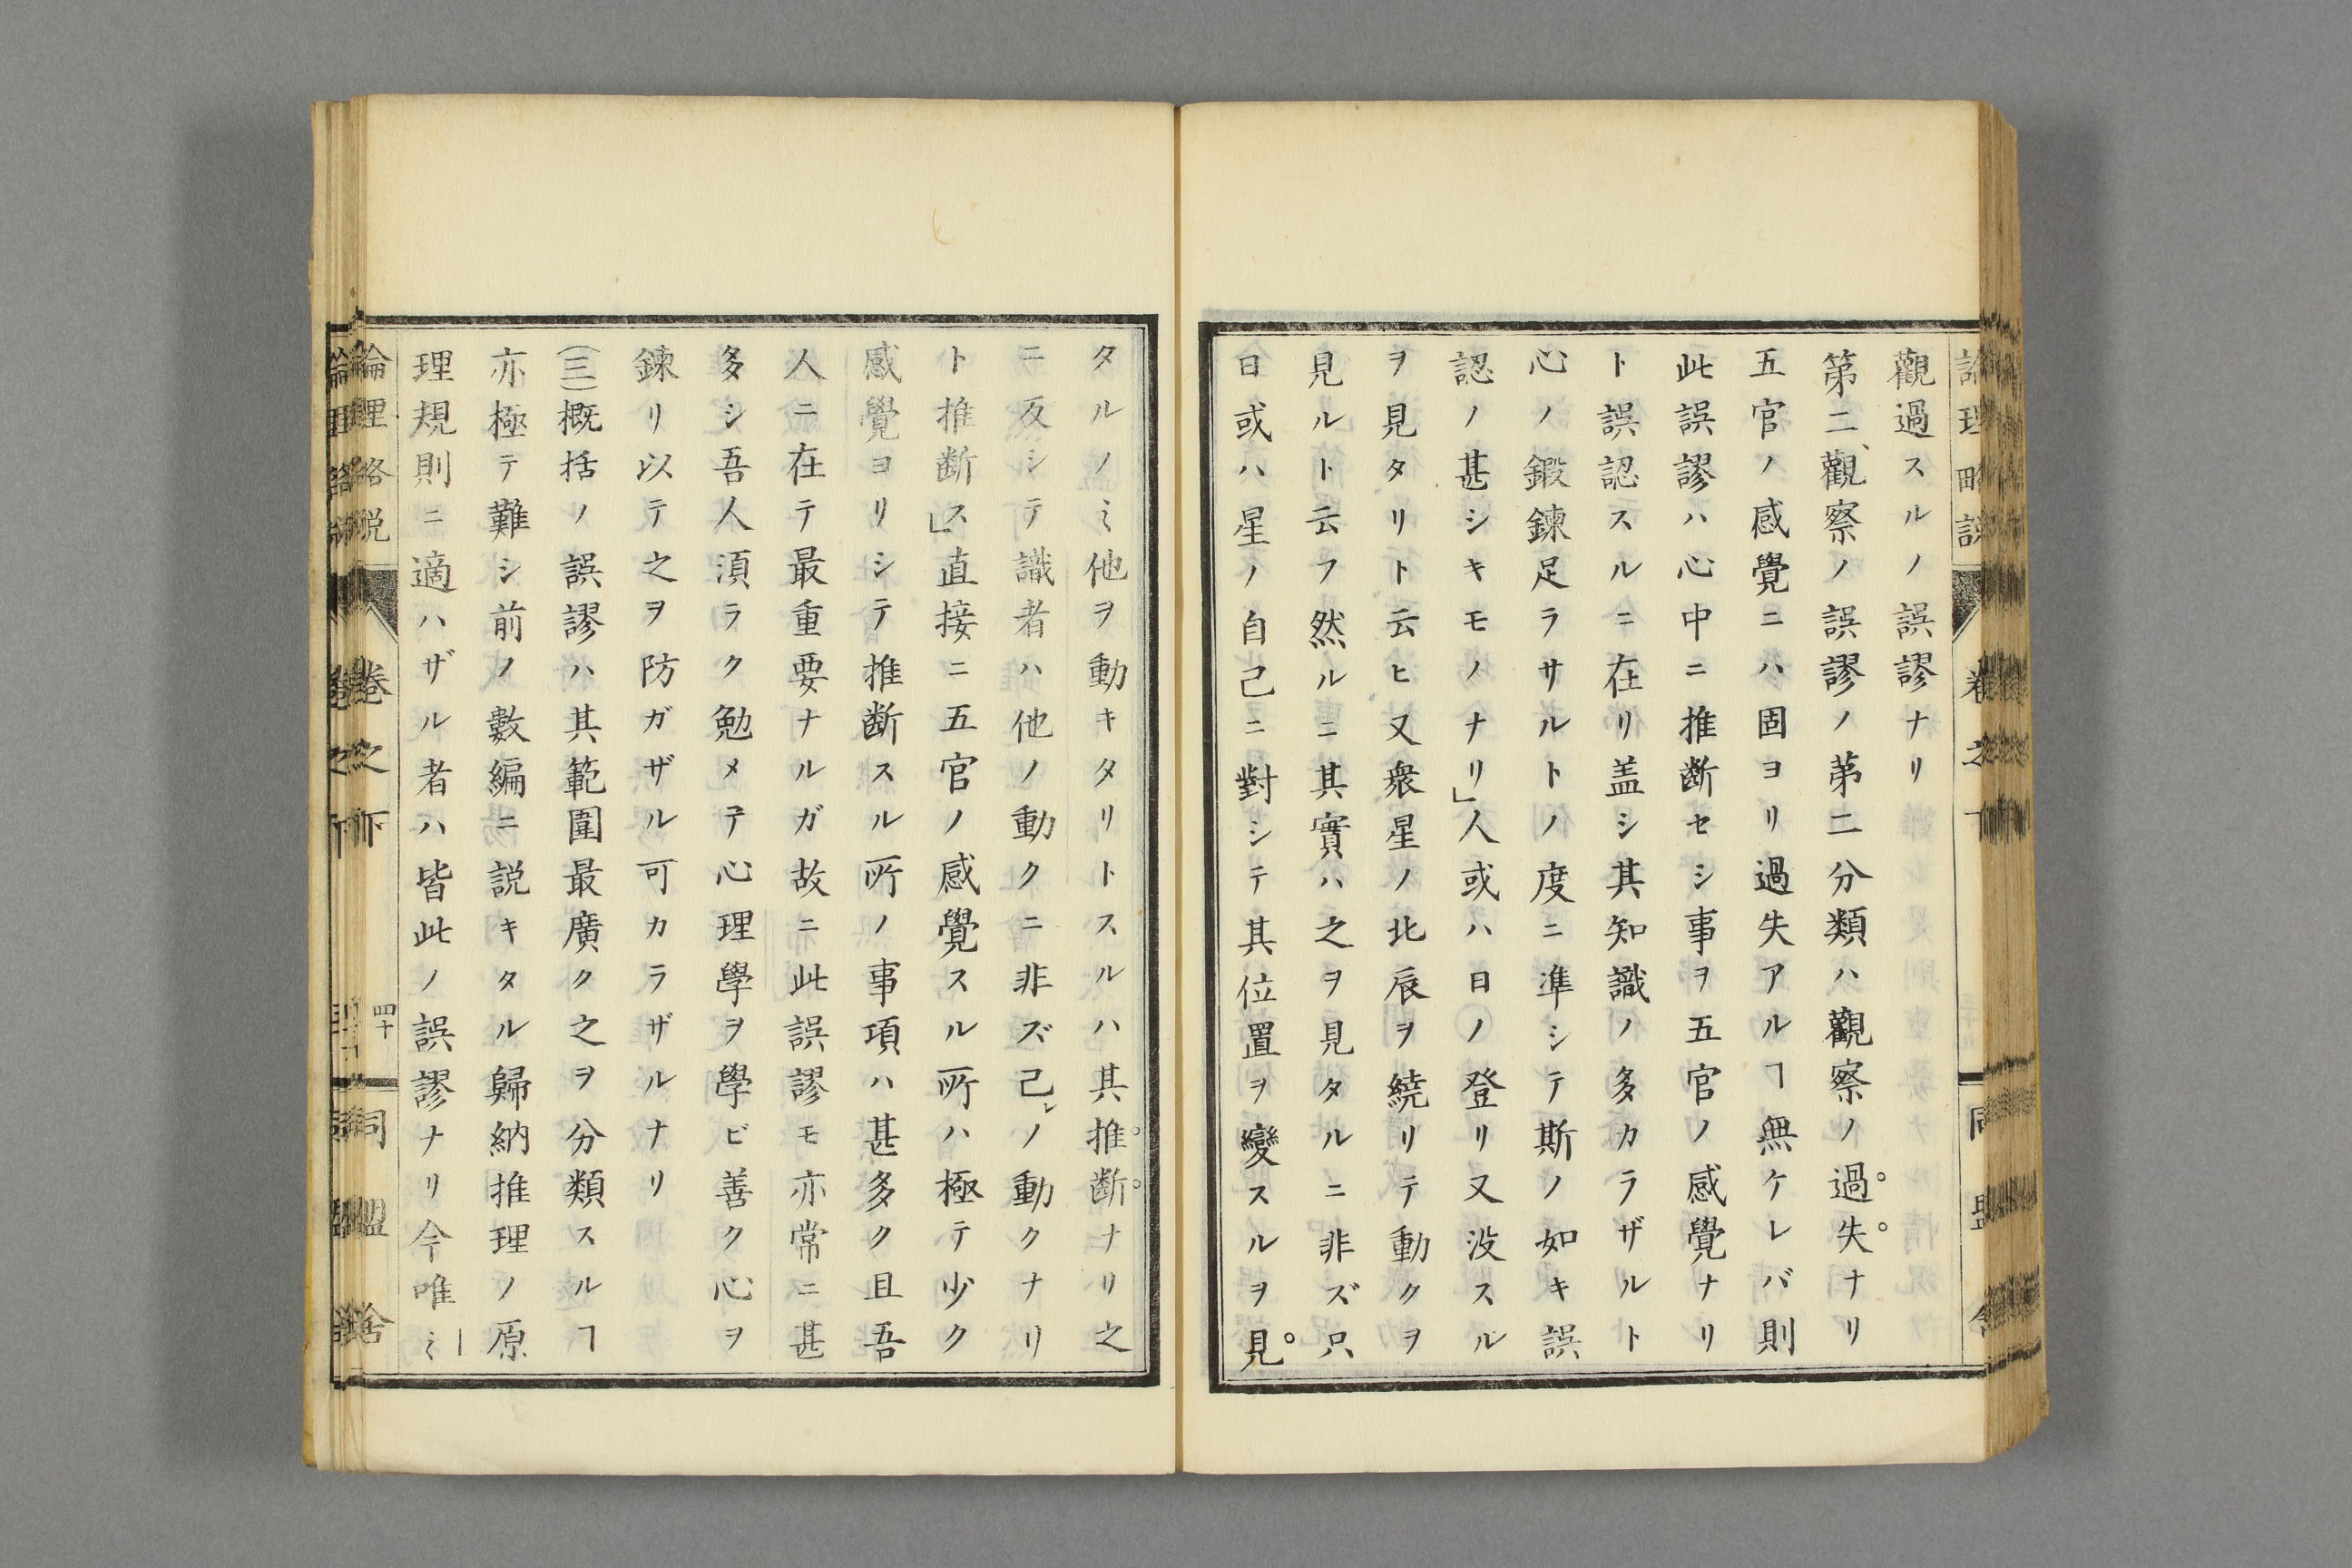 觀過スルノ誤謬ナリ
第二、觀察ノ誤謬ノ第二分類ハ觀察ノ過失ナリ
五官ノ感覺ニハ固ヨリ過失アルヿ無ケレバ則
此誤謬ハ心中ニ推断セシ事ヲ五官ノ感覺ナリ
ト誤認スルニ在リ盖シ其知識ノ多カラザルト
心ノ鍛鍊足ラサルトノ度ニ準シテ斯ノ如キ誤
認ノ甚シキモノナリ」人或ハ日ノ登リ又没スル
ヲ見タリト云ヒ又衆星ノ北辰ヲ繞リテ動クヲ
見ルト云フ然ルニ其實ハ之ヲ見タルニ非ズ只
日或ハ星ノ自己ニ對シテ其位置ヲ變スルヲ見
タルノミ他ヲ動キタリトスルハ其推断ナリ之
ニ反シテ識者ハ他ノ動クニ非ズ己レノ動クナリ
ト推断ス」直接ニ五官ノ感覺スル所ハ極テ少ク
感覺ヨリシテ推断スル所ノ事項ハ甚多ク且吾
人ニ在テ最重要ナルガ故ニ此誤謬モ亦常ニ甚
多シ吾人須ラク勉メテ心理學ヲ學ビ善ク心ヲ
鍊リ以テ之ヲ防ガザル可カラザルナリ
(三)概括ノ誤謬ハ其範圍最廣ク之ヲ分類スルヿ
亦極テ難シ前ノ數編ニ説キタル歸納推理ノ原
理規則ニ適ハザル者ハ皆此ノ誤謬ナリ今唯ミ
論理略説
卷之下
四十
同盟舎